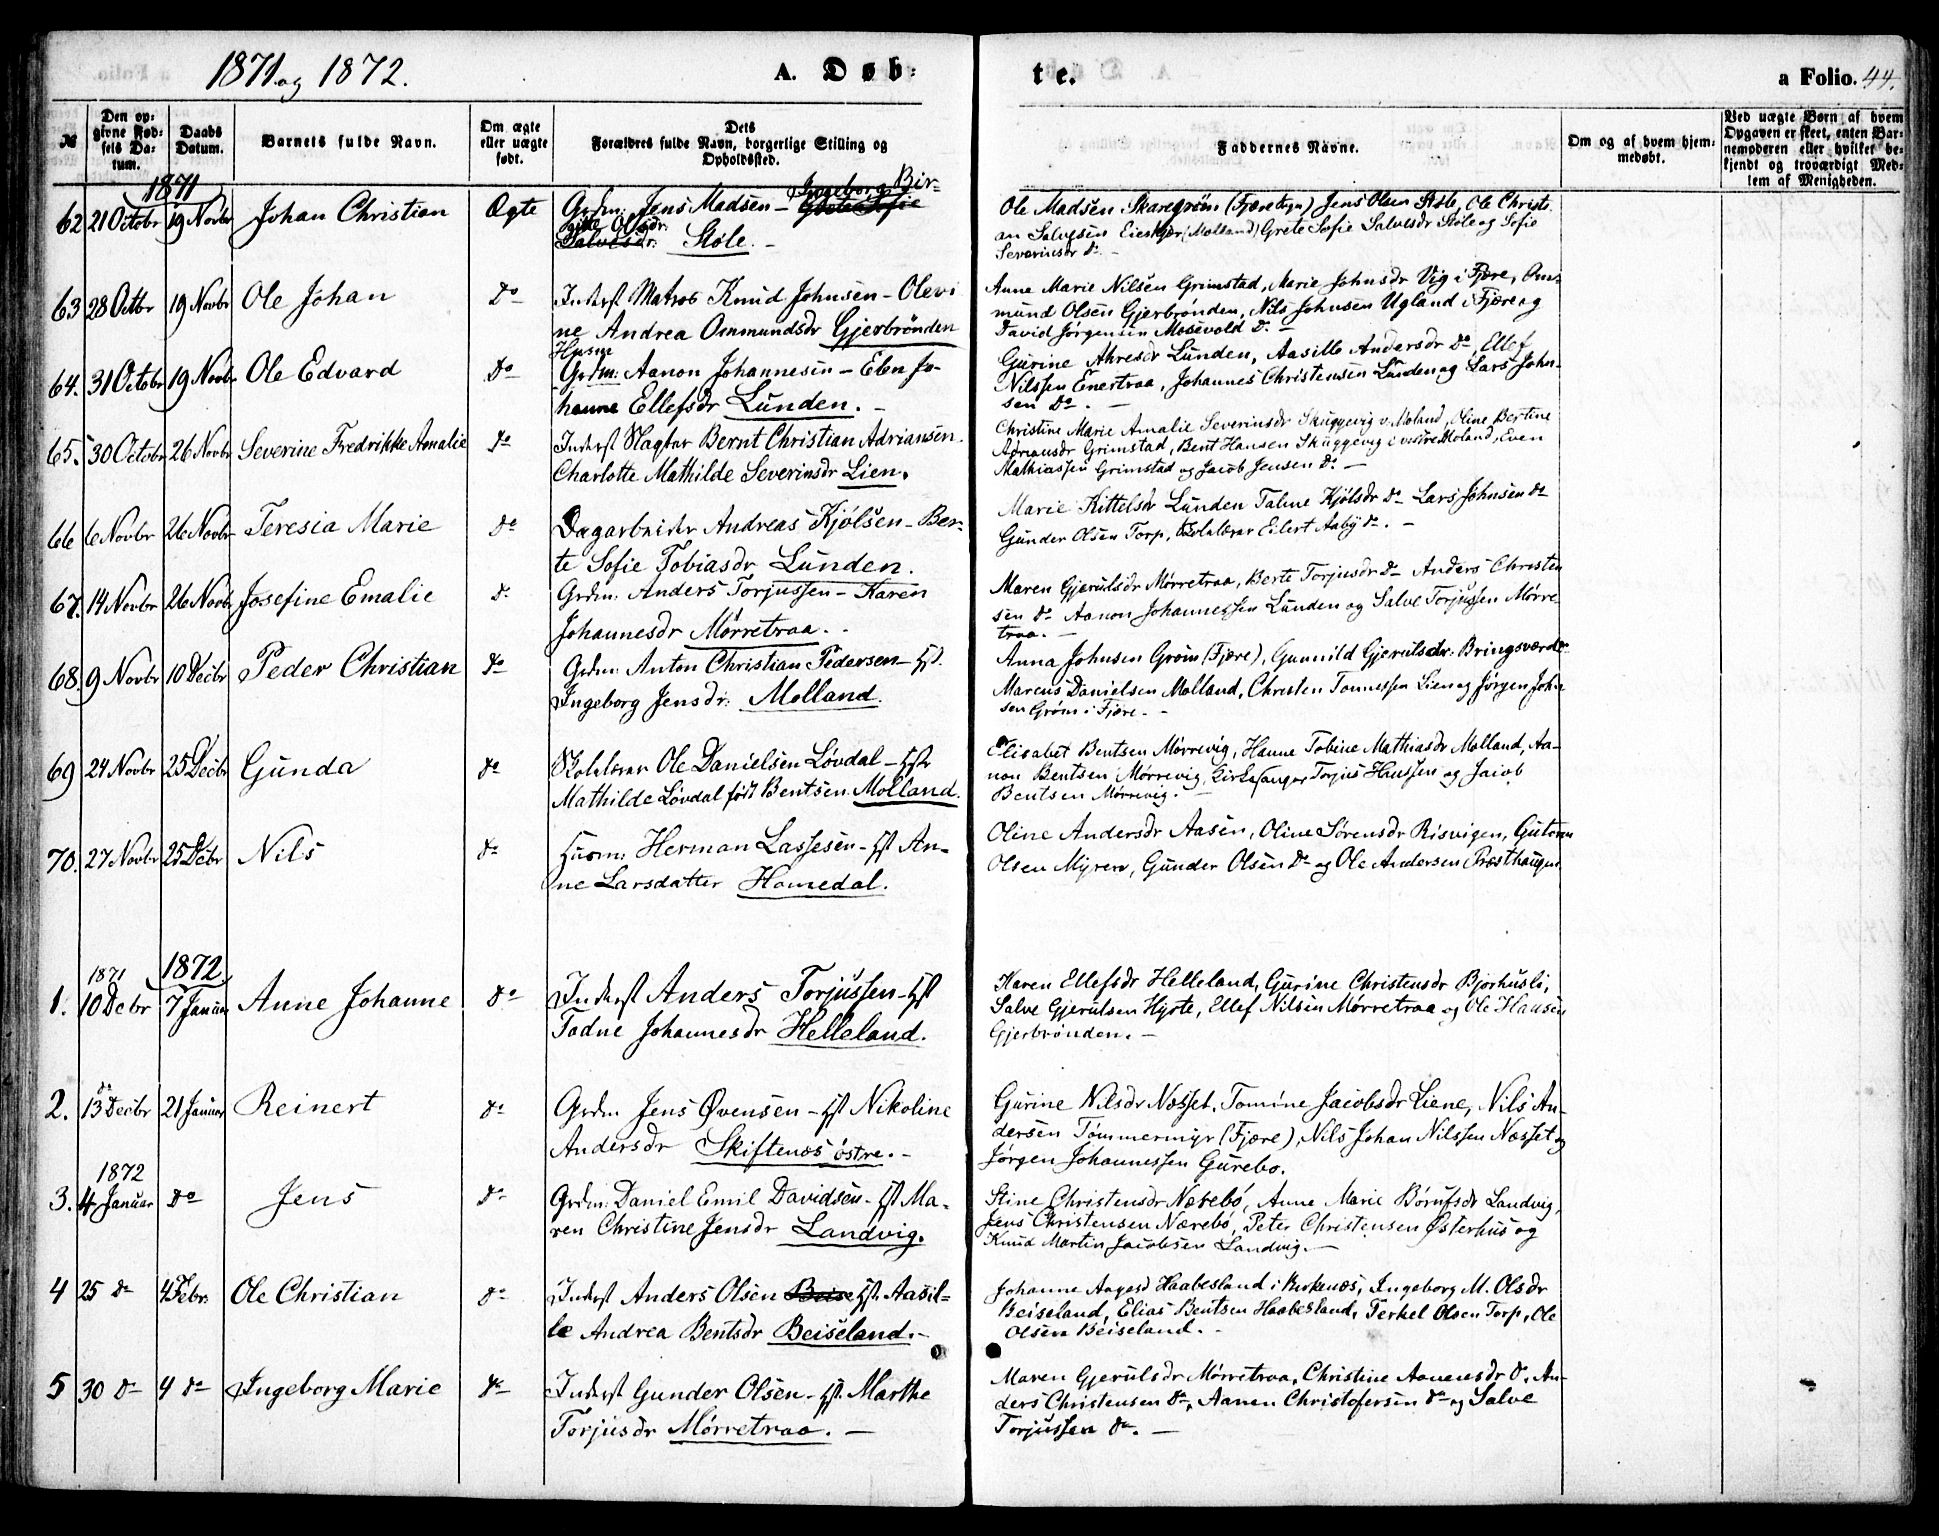 1871 og 1872.
A. Døb-
te.
a Folio. 44.
№
Den op-
givne Fød-
sels Da-
tum.
Daabs
Datum.
Barnets fulde Navn.
Om ægte
eller uægte
født.
Dets
Forældres fulde Navn, borgerlige Stilling og
Opholdssted.
Faddernes Navne.
Om og af hvem hjem-
medøbt.
Ved uægte Børn af hvem
Opgaven er skeet, enten Bar-
nemoderen eller hvilket be-
kjendt og troværdigt Med-
lem af Menigheden.
1871
62 21 Octobr 19 Novbr Johan Christian Ægte Grdm: Jens Madsen - Ingeborg Bir-
gitte Olsdr. Støle. -
Ole Madsen Skaregrøm (Fjære sogn) Jens Olsen Støle, Ole Christi
an Salvesen Eieskjær (Molland) Grete Sofie Salvesdr Støle og Sofie
Severinsdr do -
63 28 Octbr 19 Novbr Ole Johan Do Inderst Matros Knud Johnsen - Olevi
ne Andrea Ommundsdr Gjerbrønden
Anne Marie Nilsen Grimstad, Marie Johnsdr Vig i Fjære, Om-
mund Olsen Gjerbrønden, Nils Johnsen Ugland i Fjære og
David Jørgensen Mosevold do -
64. 31 Octobr 19 Novbr Ole Edvard Do Husm Grdm: Aanon Johannesen - Elen Jo-
hanne Ellefsdr Lunden. -
Gurine Ahresdr Lunden, Aasille Andersdr do Ellef
Nilssen Enertraa, Johannes Christensen Lunden og Lars John-
sen do. -
65. 30 Octobr 26 Novbr Severine Fredrikke Amalie do Inderst Slagter Bernt Christian Adriansen.
Charlotte Mathilde Severinsdr Lien.
Christine Marie Amalie Severinsdr Skuggevig v. Moland, Oline Bertine
Adriansdr Grimstad, Bent Hansen Skuggevig i vestre Moland, Even
Mathiassen Grimstad og Jacob Jensen do. -
66 6 Novbr 26 Novbr Teresia Marie do Dagarbeider Andreas Kjølsen - Ber-
te Sofie Tobiasdr Lunden.
Marie Kittelsdr Lunden Taline Kjølsdr do Lars Johnsen do
Gunder Olsen Torp, Skolelærer Eilert Aaby do. -
67. 14 Novbr 26 Novbr Josefine Emalie do Grdm: Anders Torjussen - Karen
Johannesdr Mørretraa. -
Maren Gjerulsdr Mørretraa, Berte Torjusdr do Anders Christen
sen do Aanon Johannessen Lunden og Salve Torjussen Mørre-
traa. -
68. 9 Novbr 10 Decbr Peder Christian do Grdm: Anton Christian Pedersen - Hst.
Ingeborg Jensdr: Molland.
Anna Johnsen Grøm (Fjære), Gunnild Gjerulsdr: Bringsværd
Marcus Danielsen Molland, Christen Tønnessen Lien og Jørgen John
sen Grøm i Fjære. -
69 24 Novbr 25 Decbr Gunda do Skolelærer Ole Danielsen Løvdal - Hst
Mathilde Løvdal født Bentsen Molland.
Elisabet Bentsen Mørrevig, Hanne Tobine Mathiasdr Molland, Aa-
non Bentsen Mørrevig, Kirkesanger Torjus Hanssen og Jacob
Bentsen Mørrevig.
70. 27 Novbr 25 Dcbr Nils do Husm: Herman Lassesen - Hst An-
ne Larsdatter Homedal.
Oline Andersdr Aasen, Oline Sørensdr Risvigen, Gutorm
Olsen Myren, Gunder Olsen do og Ole Andersen Præsthaugen.
1871 1872
1. 10 Decbr 7 Januar Anne Johanne do Inderst Anders Torjussen - Hst
Tadne Johannesdr Helleland.
Karen Ellefsdr Helleland, Gurine Christensdr Bjorhusli,
Salve Gjerulsen Hjrte, Ellef Nilsen Mørretraa og Ole Hansen
Gjerbrønden. -
2. 13 do Decbr 21 Januar Reinert do Grdm Jens Øvensen - Hst Nikoline
Andersdr Skiftenes østre. -
Gurine Nilsdr Næsset, Tomine Jacobsdr Liene, Nils An-
dersen Tømmermyr (Fjære), Nils Johan Nilssen Næsset og
Jørgen Johannessen Gurebo.
1872
3. 4 Januar do Jens do Grdm: Daniel Emil Davidsen - Hst Ma-
ren Christine Jensdr Landvig.
Stine Christensdr Nærebø, Anne Marie Børufsdr Landvig,
Jens Christensen Nærebø, Peter Christensen Østerhus og
Knud Martin Jacobsen Landvig. -
4 25 do 4 Febr. Ole Christian do Inderst Anders Olsen Hst. Aasil-
le Andrea Bentsdr Beiseland. -
Johanne Aagesd Haabesland i Birkenæs, Ingeborg M. Olsdr
Beiseland, Elias Bentsen Haabesland, Terkel Olsen Torp, Ole
Olsen Beiseland. -
5 30 do 4 do Ingeborg Marie do Inderst Gunder Olsen - Hst. Marthe
Torjusdr Mørretraa. -
Maren Gjerulsdr Mørretraa, Christine Aanensdr do. An-
ders Christensen do, Aanen Christofersen do og Salve
Torjussen do. -